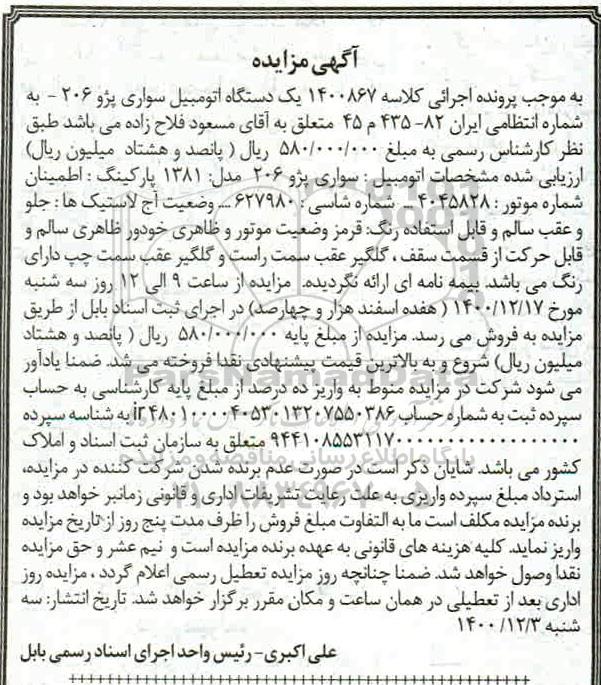 آگهی مزایده
به موجب پرونده اجرائی کلاسه ۱۴۰۰۸۶۷ یک دستگاه اتومبیل سواری پژو ۲۰۶ - به
شماره انتظامی ایران ۸۲- ۴۳۵ م ۴۵ متعلق به آقای مسعود فلاح زاده می باشد طبق
نظر کارشناس رسمی به مبلغ ۵۸۰/۰۰۰/۰۰۰ ریال ( پانصد و هشتاد میلیون ریال)
ارزیابی شده مشخصات اتومبیل : سواری پژو ۲۰۶ مدل: ۱۳۸۱ پارکینگ : اطمینان
شماره موتور : ۴۰۴۵۸۲۸ - شماره شاسی : ۶۲۷۹۸۰ ... وضعیت آج لاستیک ها : جلو
و عقب سالم و قابل استفاده رنگ: قرمز وضعیت موتور و ظاهری خودور ظاهری سالم و
قابل حرکت از قسمت سقف ، گلگیر عقب سمت راست و گلگیر عقب سمت چپ دارای
رنگ می باشد. بیمه نامه ای ارائه نگردیده. مزایده از ساعت ۹ الی ۱۲ روز سه شنبه
مورخ ۱۴۰۰/۱۲/۱۷ ( هفده اسفند هزار و چهارصد) در اجرای ثبت اسناد بابل از طریق
مزایده به فروش می رسد. مزایده از مبلغ پایه ۵۸۰/۰۰۰/۰۰۰ ریال ( پانصد و هشتاد
میلیون ریال) شروع و به بالاترین قیمت پیشنهادی نقدا فروخته می شد. ضمنا یادآور
می شود شرکت در مزایده منوط به واریز ده درصد از مبلغ پایه کارشناسی به حساب
سپرده ثبت به شماره حساب ir۴۸۰۱۰۰۰۰۴۰۵۳۰۱۳۲۰۷۵۵۰۳۸۶ به شناسه سپرده
۹۴۴۱۰۸۵۵۳۱۱۷۰۰۰۰۰۰۰۰۰۰۰۰۰۰۰۰۰۰ متعلق به سازمان ثبت اسناد و املاک
کشور می باشد. شایان ذکر است در صورت عدم برنده شدن شرکت کننده در مزایده،
استرداد مبلغ سپرده واریزی به علت رعایت تشریفات اداری و قانونی زمانبر خواهد بود و
برنده مزایده مکلف است ما به التفاوت مبلغ فروش را ظرف مدت پنج روز از تاریخ مزایده
واریز نماید. کلیه هزینه های قانونی به عهده برنده مزایده است و نیم عشر و حق مزایده
نقدا وصول خواهد شد. ضمنا چنانچه روز مزایده تعطیل رسمی اعلام گردد ، مزایده روز
اداری بعد از تعطیلی در همان ساعت و مکان مقرر برگزار خواهد شد. تاریخ انتشار: سه
شنبه ۱۴۰۰/۱۲/۳
علی اکبری- رئیس واحد اجرای اسناد رسمی بابل
ParsNamadData
پایگاه اطلاع رسانی مناقصه و مزایده